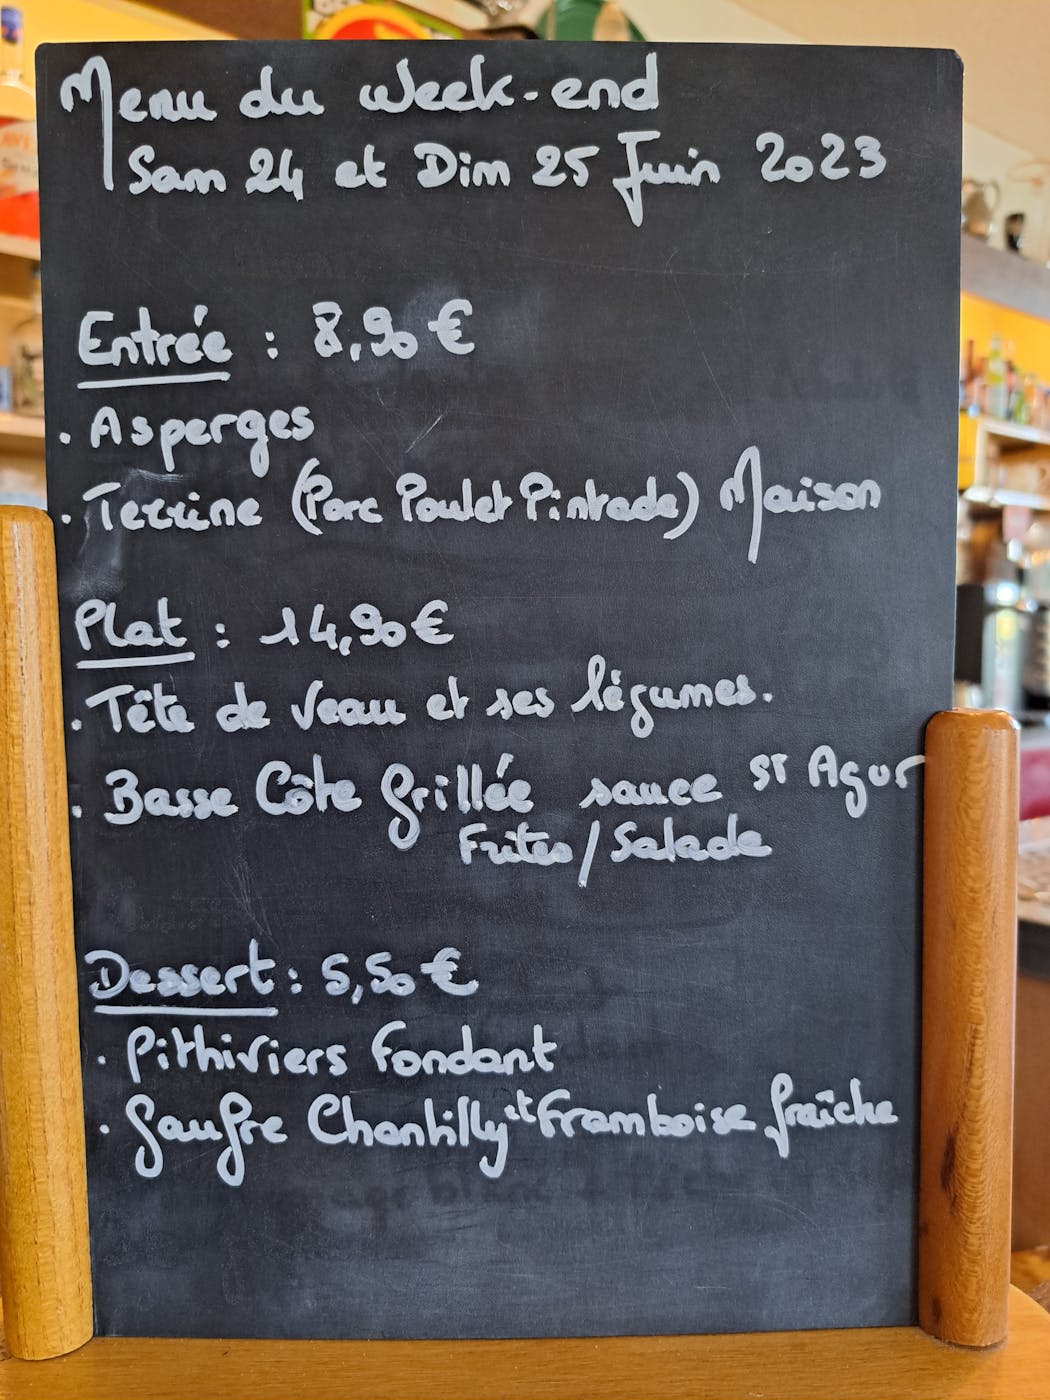 Menu du Week-end
Sam 24 et Dim 25 Juin 2023
Entrée : 8,90 €
. Asperges
. Terrine (Porc Poulet Pintade) Maison
Plat : 14,90 €
. Tête de Veau et ses légumes.
. Basse Côte Grillée sauce ST Agur
Frites / Salade
Dessert : 5,50 €
. Pithiviers Fondant
. Gaufre Chantilly et Framboise fraîche